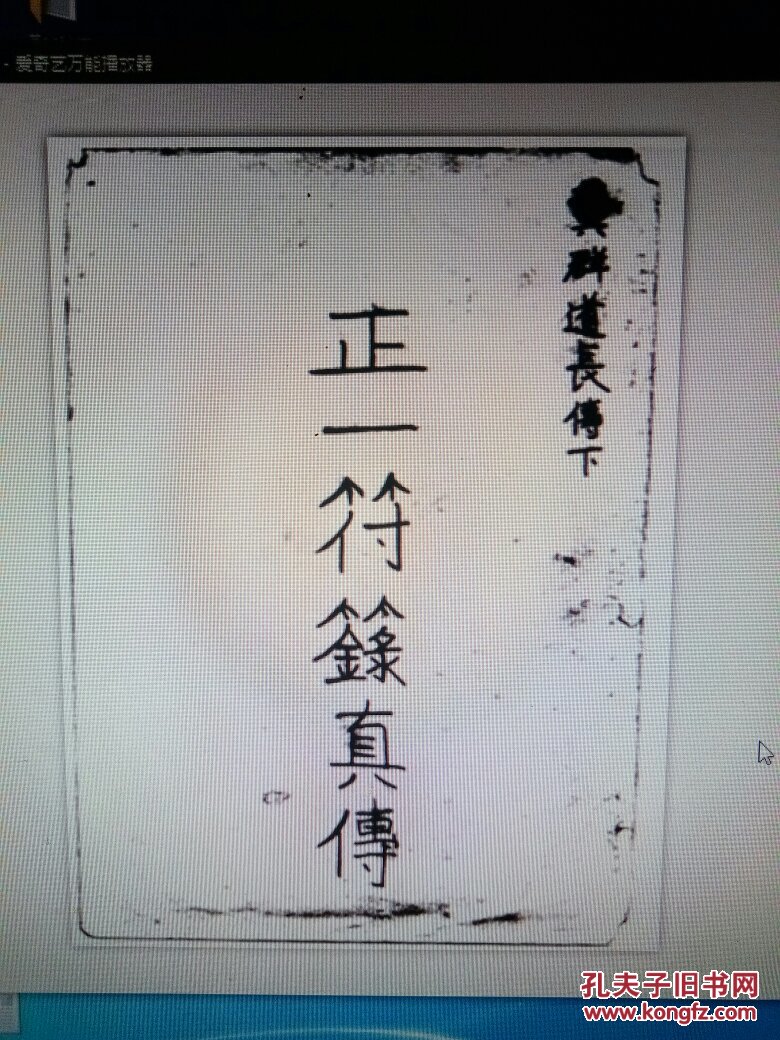 - 爱奇艺万能播放器
群道長傳下
正一符籙真傳
孔夫子旧书网
www.kongfz.com